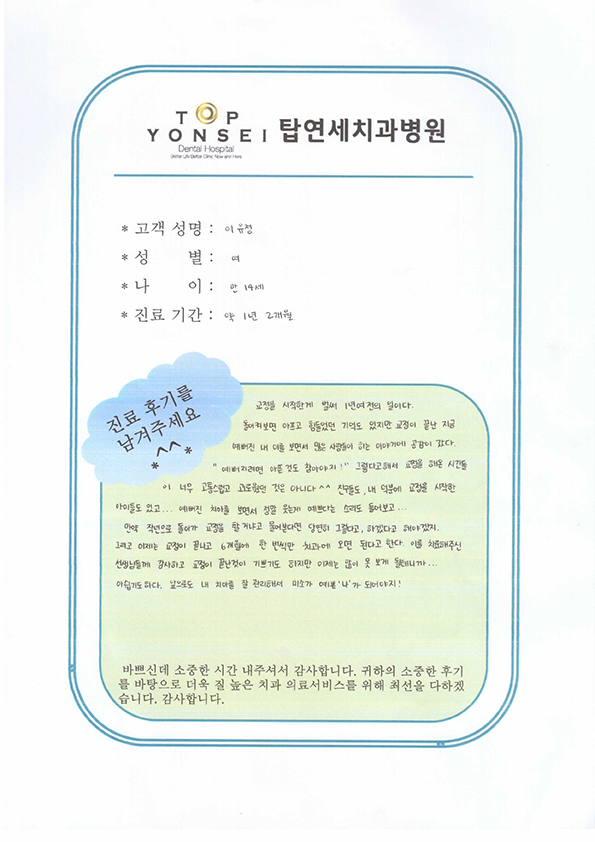 TOP
YONSEI 탑연세치과병원
Dental Hospital
Better Life Better Clinic Now and Here
* 고객 성명 : 이유정
* 성 별 : 여
* 나 이 : 만 14세
* 진료 기간 : 약 1년 2개월
진료 후기를
남겨주세요
*^^*
교정을 시작한게 벌써 1년여전의 일이다.
돌이켜보면 아프고 힘들었던 기억도 있지만 교정이 끝난 지금
예뻐진 내 이를 보면서 많은 사람들이 하는 이야기에 공감이 갔다.
"예뻐지려면 아픈것도 참아야지!" 그렇다고해서 교정을 해온 시간들
이 너무 고통스럽고 괴로웠던 것은 아니다^^ 친구들도, 내 덕분에 교정을 시작한
아이들도 있고... 예뻐진 치아를 보면서 정말 웃는게 예쁘다는 소리도 들어보고...
만약 작년으로 돌아가 교정을 할거냐고 물어본다면 당연히 그렇다고, 하겠다고 해야겠지.
그리고 이제는 교정이 끝나고 6개월에 한 번씩만 치과에 오면 된다고 한다. 이를 치료해주신
선생님들께 감사하고 교정이 끝난것이 기쁘기도 하지만 이제는 많이 못 보게 될테니까...
아쉽기도하다. 앞으로도 내 치아를 잘 관리해서 미소가 예쁜 '나'가 되어야지!
바쁘신데 소중한 시간 내주셔서 감사합니다. 귀하의 소중한 후기
를 바탕으로 더욱 질 높은 치과 의료서비스를 위해 최선을 다하겠
습니다. 감사합니다.